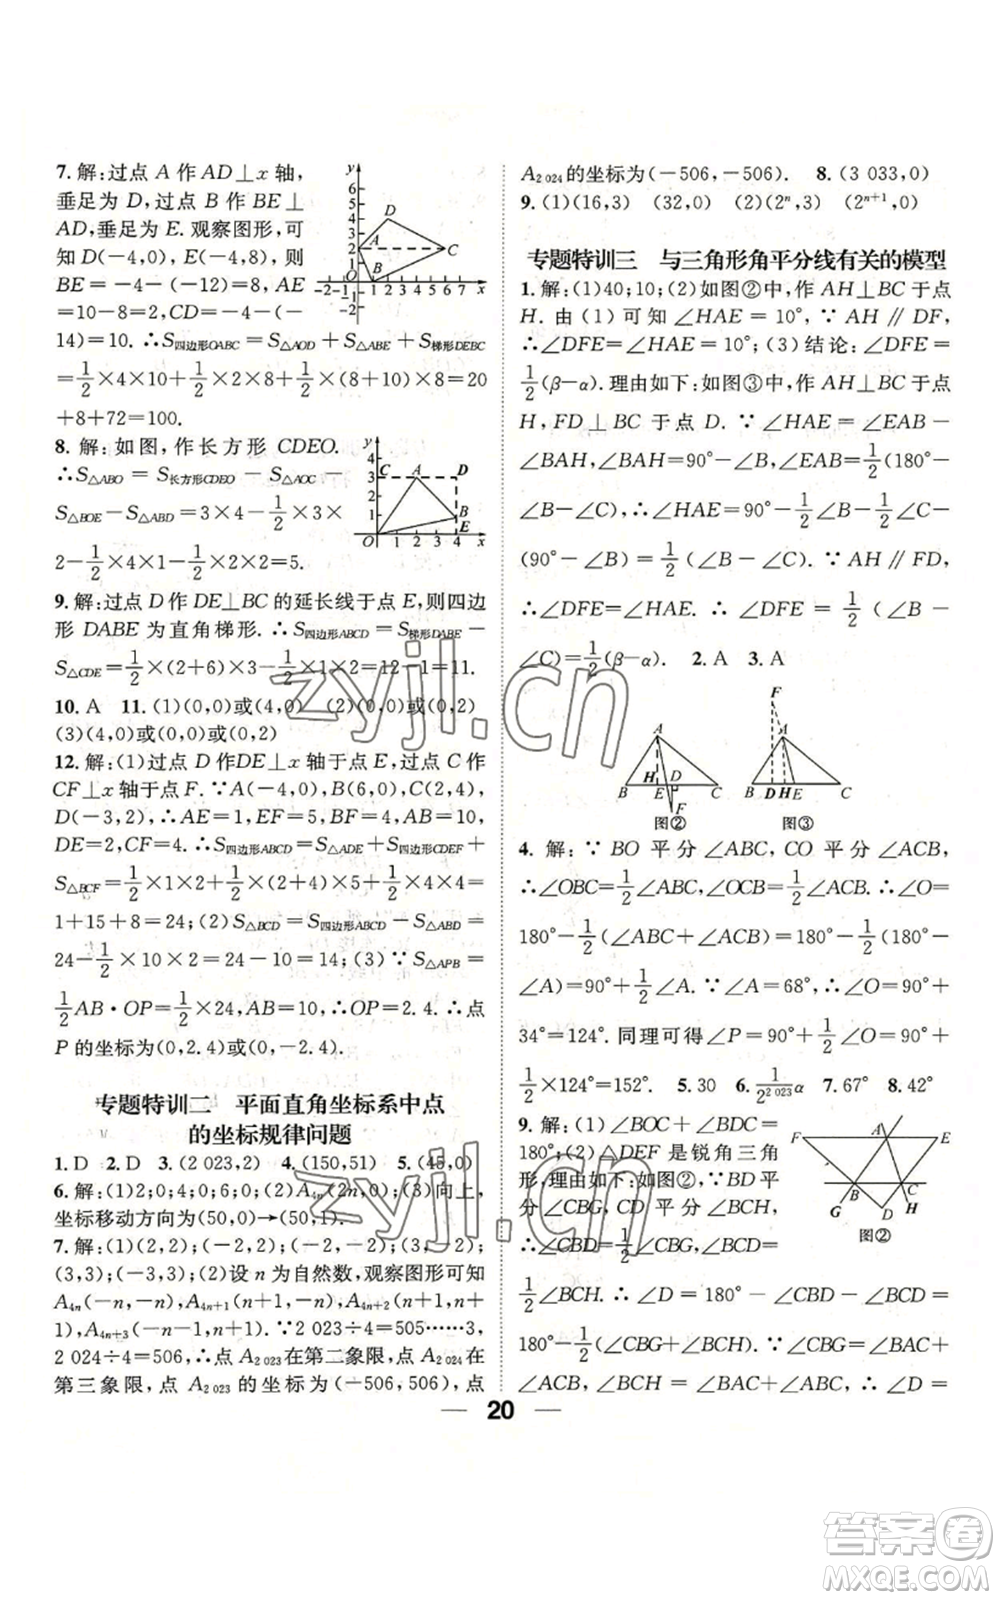 7. 解:过点 A 作 AD⊥x 轴,
垂足为点 D,过点 B 作 BE⊥
AD,垂足为 E. 观察图形,可
知 D(-4,0),E(-4,-8),则
BE=-4-(-12)=8,AE
=10-8=2,CD=-4-(-
14)=10. ∴S四边形OABC=S△AOD+S△ABE+S梯形DEBC
=1/2×4×10+1/2×2×8+1/2×(10+8)×8=20
+8+72=100.
y
6
5
4
3
2
1
O
-1
-2
-2-1
1 2 3 4 5 6 7 x
A
B
C
D
8. 解:如图,作长方形 CDEO.
∴S△ABO=S长方形CDEO-S△AOC-
S△BOE-S△ABD=3×4-1/2×3×
2-1/2×4×1-1/2×2×2=5.
y
4
3
2
1
O 1 2 3 4 x
C A D
B
E
9. 解:过点 D 作 DE⊥BC 的延长线于点 E,则四边
形 DABE 为直角梯形. ∴S四边形ABCD=S梯形DABE-
S△CDE=1/2×(2+6)×3-1/2×1×2=12-1=11.
10. A 11. (1)(0,0)或(4,0) (2)(0,0)或(0,2)
(3)(4,0)或(0,0)或(0,2)
12. 解:(1)过点 D 作DE⊥x 轴于点 E,过点 C 作
CF⊥x 轴于点 F. ∵A(-4,0),B(6,0),C(2,4),
D(-3,2),∴AE=1,EF=5,BF=4,AB=10,
DE=2,CF=4. ∴S四边形ABCD=S△ADE+S四边形CDEF+
S△BCF=1/2×1×2+1/2×(2+4)×5+1/2×4×4=
1+15+8=24;(2)S△BCD=S四边形ABCD-S△ABD=
24-1/2×10×2=24-10=14;(3)∵S△APB=
1/2AB·OP=1/2×24,AB=10,∴OP=2.4. ∴点
P 的坐标为(0,2.4)或(0,-2.4).
专题特训二 平面直角坐标系中点
的坐标规律问题
1. D 2. D 3. (2 023,2) 4. (150,51) 5. (45,0)
6. 解:(1)2;0;4;0;6;0;(2)A₄ₙ(2n,0);(3)向上,
坐标移动方向为(50,0)→(50,1).
7. 解:(1)(2,2);(-2,2);(-2,-2);(3,-2);
(3,3);(-3,3);(2)设 n 为自然数,观察图形可知
A₄ₙ(-n,-n),A₄ₙ₊₁(n+1,-n),A₄ₙ₊₂(n+1,n+
1),A₄ₙ₊₃(-n-1,n+1). ∵2 023÷4=505……3,
2 024÷4=506,∴点 A₂ ₀₂₃在第二象限,点 A₂ ₀₂₄在
第三象限,点 A₂ ₀₂₃的坐标为(-506,506),点
A₂ ₀₂₄的坐标为(-506,-506). 8. (3 033,0)
9. (1)(16,3) (32,0) (2)(2ⁿ,3) (2ⁿ⁺¹,0)
专题特训三 与三角形角平分线有关的模型
1. 解:(1)40;10;(2)如图②中,作 AH⊥BC 于点
H. 由(1)可知∠HAE=10°,∵AH∥DF,
∴∠DFE=∠HAE=10°;(3)结论:∠DFE=
1/2(β-α). 理由如下:如图③中,作 AH⊥BC 于点
H,FD⊥BC 于点 D. ∵∠HAE=∠EAB-
∠BAH,∠BAH=90°-∠B,∠EAB=1/2(180°
-∠B-∠C),∴∠HAE=90°-1/2∠B-1/2∠C-
(90°-∠B)=1/2(∠B-∠C). ∵AH∥FD,
∴∠DFE=∠HAE. ∴∠DFE=1/2(∠B-
∠C)=1/2(β-α). 2. A 3. A
A
B H E D C
F
图②
F
A
B D H E C
图③
4. 解:∵BO 平分∠ABC,CO 平分∠ACB,
∴∠OBC=1/2∠ABC,∠OCB=1/2∠ACB,∴∠O=
180°-1/2(∠ABC+∠ACB)=180°-1/2(180°-
∠A)=90°+1/2∠A. ∵∠A=68°,∴∠O=90°+
34°=124°. 同理可得∠P=90°+1/2∠O=90°+
1/2×124°=152°. 5. 30 6. 1/2²⁰²³α 7. 67° 8. 42°
9. 解:(1)∠BOC+∠BDC=
180°;(2)△DEF 是锐角三角
形,理由如下:如图②,∵BD平
分∠CBG,CD 平分∠BCH,
∴∠CBD=1/2∠CBG,∠BCD=
1/2∠BCH. ∴∠D=180°-∠CBD-∠BCD=
180°-1/2(∠CBG+∠BCH). ∵∠CBG=∠BAC+
∠ACB,∠BCH=∠BAC+∠ABC,∴∠D=
F A E
B C
G D H
图②
20
zyjl.cn
zyjl.cn
答案圈
MXQE.COM